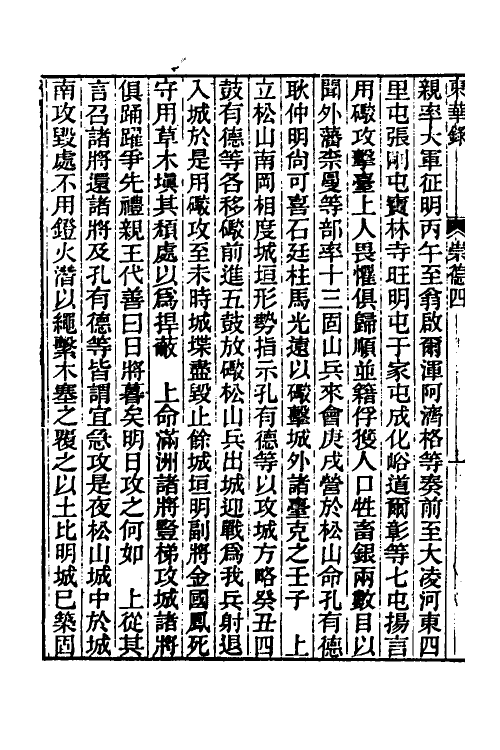 東華錄 崇德四 一
親率大軍征明丙午至翁啟爾渾阿濟格等奏前至大凌河東四
里屯張剛屯寶林寺旺明屯于家屯成化峪道爾彰等七屯揚言
用礮攻擊臺上人畏懼俱歸順並籍俘獲人口牲畜銀兩數目以
聞外藩柰曼等部率十三固山兵來會庚戌營於松山命孔有德
耿仲明尙可喜石廷柱馬光遠以礮擊城外諸臺克之壬子 上
立松山南岡相度城垣形勢指示孔有德等以攻城方略癸丑四
鼓有德等各移礮前進五鼓放礮松山兵出城迎戰爲我兵射退
入城於是用礮攻至未時城堞盡毀止餘城垣明副將金國鳳死
守用草木塡其頹處以爲捍蔽 上命滿洲諸將豎梯攻城諸將
俱踊躍爭先禮親王代善曰日將暮矣明日攻之何如 上從其
言召諸將還諸將及孔有德等皆謂宜急攻是夜松山城中於城
南攻毀處不用鐙火潛以繩繫木塞之覆之以土比明城已築固